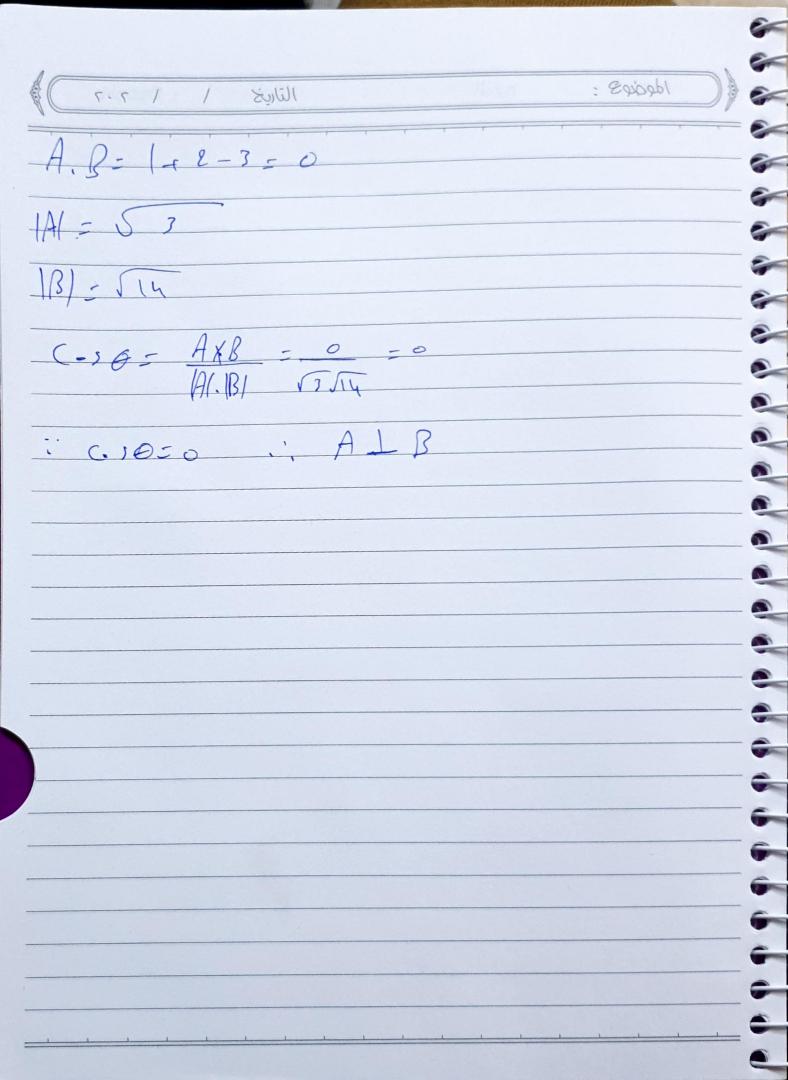 الموضوع :
التاريخ / / ٢٠٢
A . B = 1 + 2 - 3 = 0
|A| = √3
|B| = √14
Cosθ = A×B / |A|.|B| = 0 / √3 √14 = 0
∵ Cosθ = 0 ∴ A ⊥ B